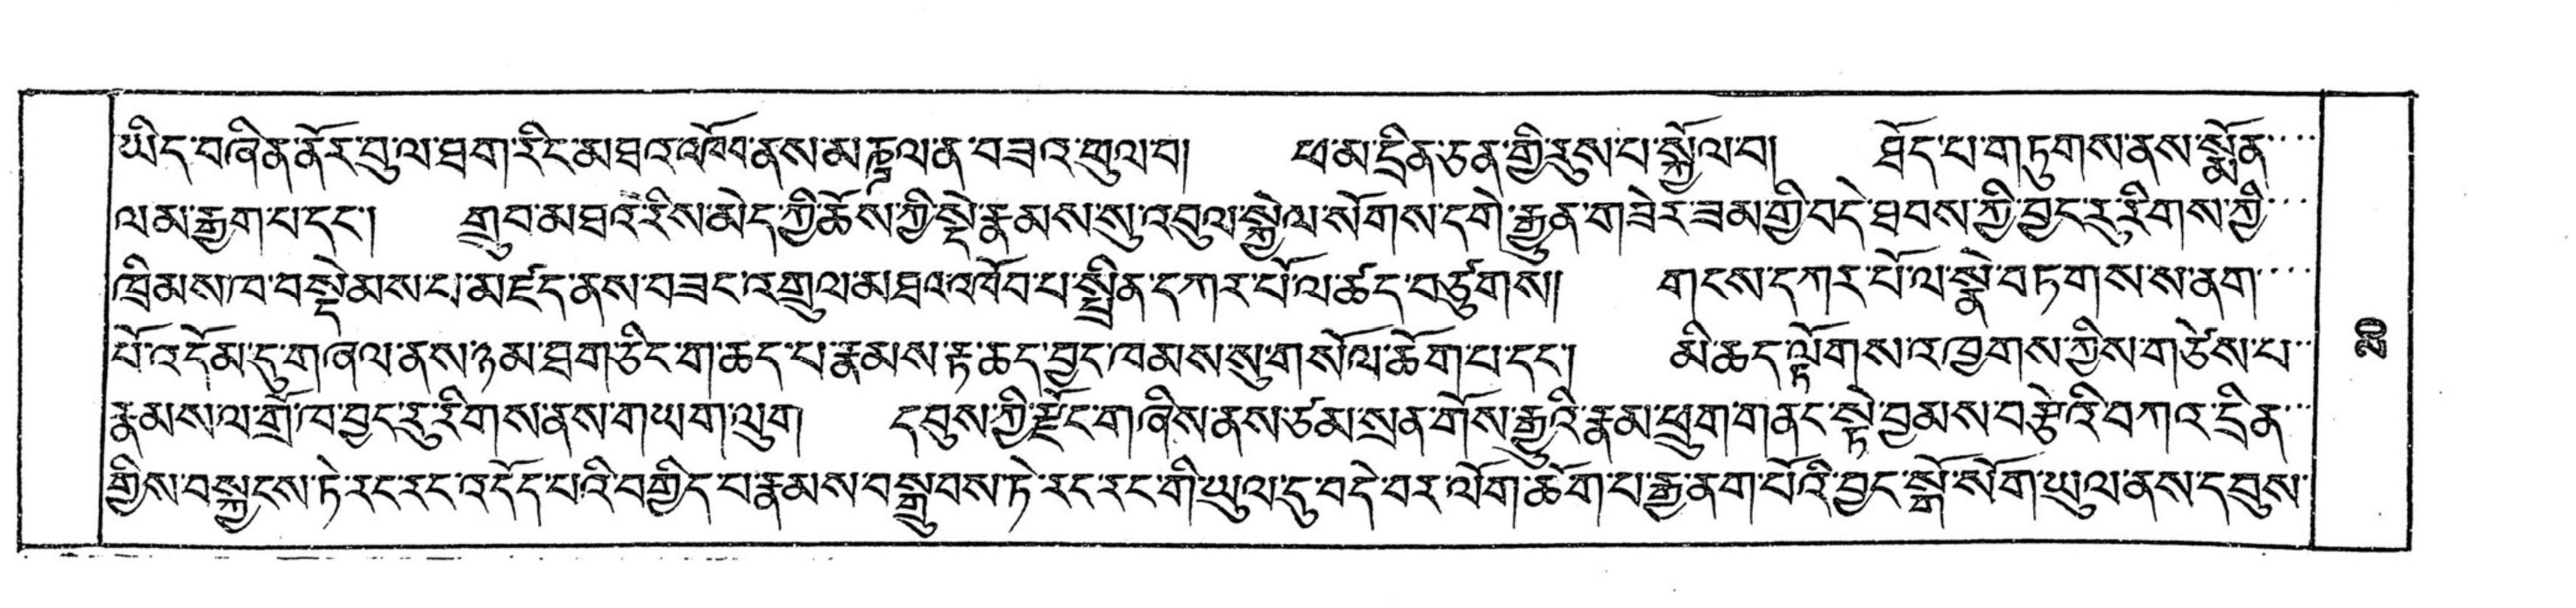 ཡིད་བཞིན་ནོར་བུ་ལ་ཐག་རིང་མཐའ་འཁོབ་ནས་མ་ཎྜལ་ན་བཟའ་གུལ་བ། ཕ་མ་དྲིན་ཅན་གྱི་རུས་པ་སྐྱོལ་བ། ཐོད་པ་གཏུགས་ནས་སྨོན་
ལམ་རྒྱག་པ་དང་། གྲུབ་མཐའ་རིས་མེད་ཀྱི་ཆོས་ཀྱི་སྡེ་རྣམས་སུ་འབུལ་སྐྱེལ་སོགས་དགེ་རྒྱུན་གཟེར་ཟམ་གྱི་བདེ་ཐབས་ཀྱི་བྱང་རུ་རིགས་ཀྱི་
ཁྲིམས་ཁ་བསྡེམས་པ་མཛད་ནས་བཟང་འགྲུལ་མཐའ་འཁོབ་པ་སྤྲིན་དཀར་པོ་ལ་ཚད་བཙུགས། གངས་དཀར་པོ་ལ་སྣེ་བཏགས་ས་ནག་
པོ་འདོམ་དུ་གཞལ་ནས་ཉམ་ཐག་ཅིང་ག་ཆད་པ་རྣམས་རྟ་ཆད་བྱང་ཁམས་སུ་གསོལ་ཆོག་པ་དང་། མི་ཆད་ལྟོགས་འཁྱགས་ཀྱིས་གཙེས་པ་
རྣམས་ལ་གྲོ་ཁ་བྱང་རུ་རིགས་ནས་གཡག་ལུག དབུས་ཀྱི་རྫོང་གཞིས་ནས་ཙམ་སྲན་གོས་རྒྱུའི་རྣམ་ཕྲུག་གནང་སྟེ་བྱམས་བརྩེའི་བཀའ་དྲིན་
གྱིས་བསྐྱངས་ཏེ་རང་རང་འདོད་པའི་བགྱིད་པ་རྣམས་བསྒྲུབས་ཏེ་རང་རང་གི་ཡུལ་དུ་བདེ་བར་ལོག་ཆོག་པ་རྒྱ་ནག་པོའི་བྱང་སྒོ་སོག་ཡུལ་ནས་དབུས་